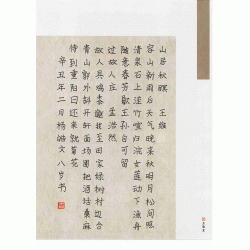 山居秋暝 王维
空山新雨后天气晚来秋明月松间照
清泉石上流竹喧归浣女莲动下渔舟
随意春芳歇王孙自可留
过故人庄 孟浩然
故人具鸡黍邀我至田家绿树村边合
青山郭外斜开轩面场圃把酒话桑麻
待到重阳日还来就菊花
辛丑年二月杨皓文八岁书